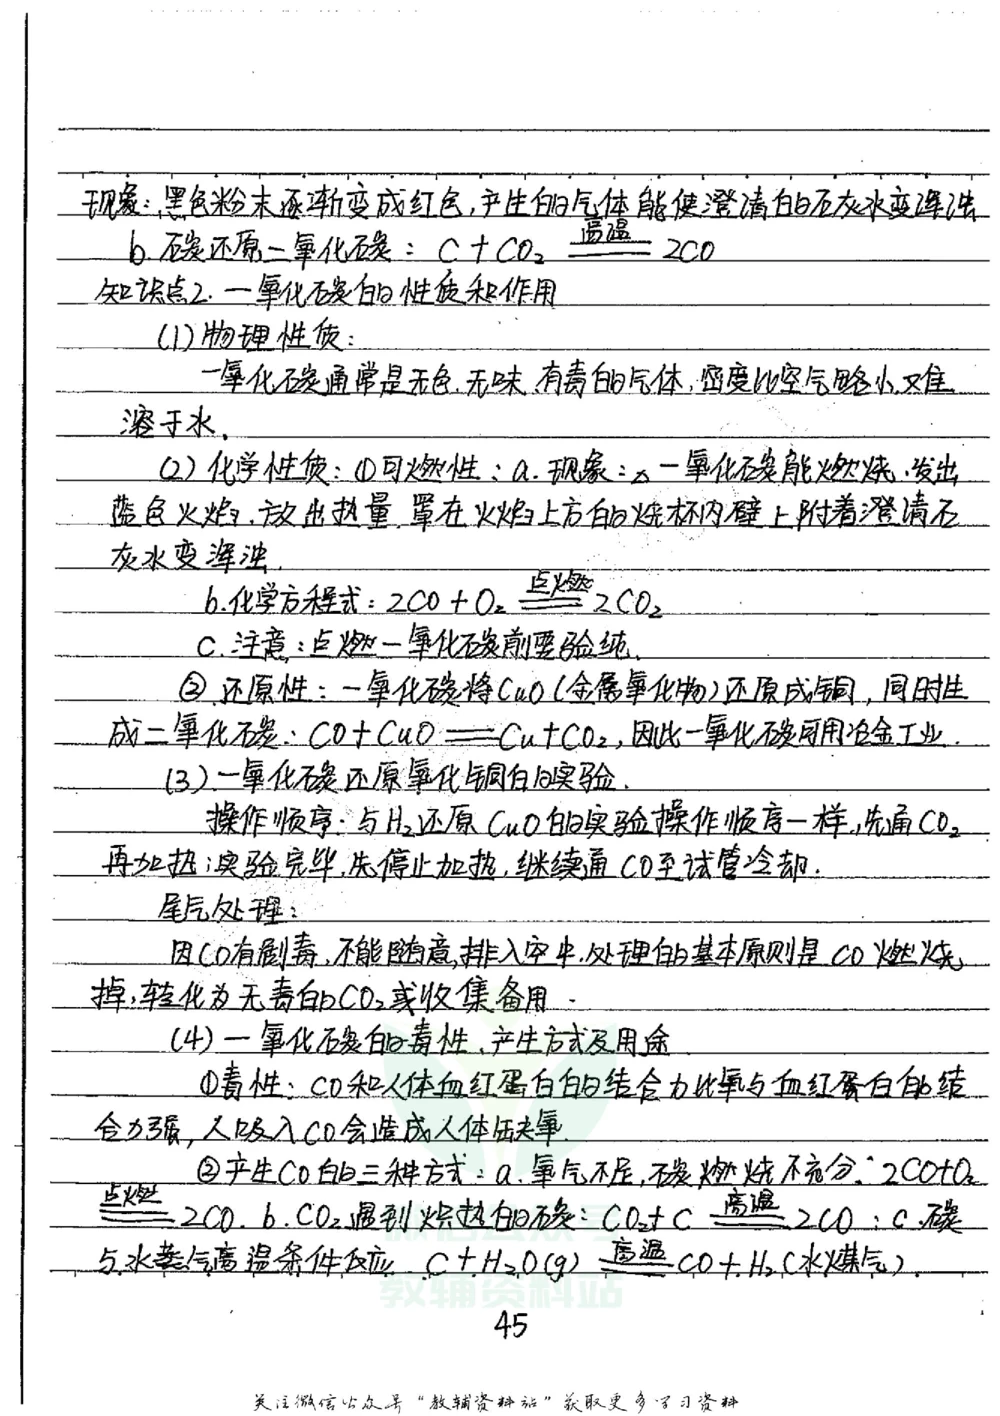 现象：黑色粉末逐渐变成红色，产生的气体能使澄清的石灰水变浑浊
b. 碳还原二氧化碳：C + CO₂ 高温 2CO
知识点2. 一氧化碳的性质和作用
(1) 物理性质：
一氧化碳通常是无色、无味、有毒的气体，密度比空气略小，又难
溶于水。
(2) 化学性质：①可燃性：a. 现象：△一氧化碳能燃烧，发出
蓝色火焰，放出热量，罩在火焰上方的烧杯内壁上附着澄清石
灰水变浑浊。
b. 化学方程式：2CO + O₂ 点燃 2CO₂
C. 注意：点燃一氧化碳前要验纯.
② 还原性：一氧化碳将CuO (金属氧化物) 还原成铜，同时生
成二氧化碳：CO + CuO == Cu + CO₂，因此一氧化碳可用冶金工业.
(3) 一氧化碳还原氧化铜的实验.
操作顺序：与H₂还原CuO的实验操作顺序一样，先通CO₂
再加热；实验完毕，先停止加热，继续通CO至试管冷却.
尾气处理：
因CO有剧毒，不能随意排入空中，处理的基本原则是CO燃烧
掉，转化为无毒的CO₂或收集备用.
(4) 一氧化碳的毒性、产生方式及用途
①毒性：CO和人体血红蛋白的结合力比氧与血红蛋白的结
合力强，人吸入CO会造成人体缺氧.
②产生CO的三种方式：a. 氧气不足，碳燃烧不充分：2CO+O₂
点燃 2CO. b. CO₂遇到炽热的碳：CO₂ + C 高温 2CO；c. 碳
与水蒸气高温条件反应 C + H₂O(g) 高温 CO + H₂ (水煤气).
教辅资料站
45
关注微信公众号“教辅资料站”获取更多学习资料